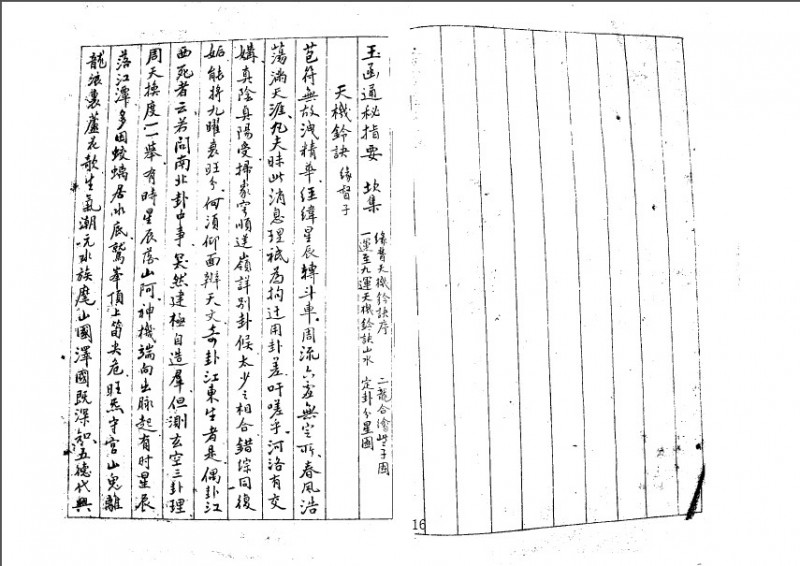 玉函通秘指要 坎集
缘督天機鈐訣序 二龍合會
一運至九運天機鈐訣山水 定卦分星圖
天機鈐訣 缘督子
苞符無故洩精華經緯星辰轉斗車周流六虚無定所春風浩
蕩滿天涯凡夫昧此消息理祇為拘迂用卦差吁嗟乎河洛有交
媾真陰真陽受掃家穹順逆嶺詳别卦候太少之相合錯綜同復
姤能將九曜衰旺分何須仰面辯天文奇卦江東生者是偶卦江
西死者云若問南北卦中事突然建極自造羣但測玄空三卦理
周天換度一一舉有時星辰落山阿神機端向出脉起有时星辰
落江潭多因蛟螭居水底鷲峯頂上筍尖危旺炁守宫山鬼離
龍浪裏蘆花歕生氣潮元水族麾山國澤國既深知五德代興
16